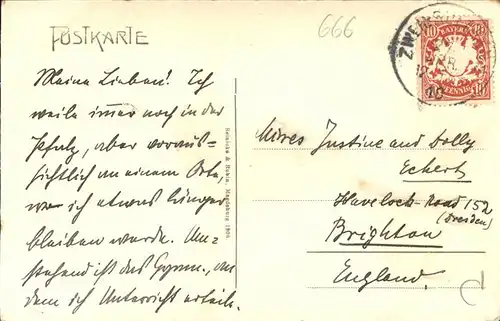 666
POSTKARTE
BAYERN
10 10
PFENNIG
Meine Lieben! Ich
weile immer noch in der
Pfalz, aber voraus-
sichtlich an einem Orte,
wo ich etwas länger
bleiben werde. Um-
stehend ist das Gymn., an
dem ich Unterricht erteile.
Reinicke & Rubin, Magdeburg, 1906.
Mires Justine and Dolly
Eckert
Havelock-Road 152
(Dresden)
Brighton
England.